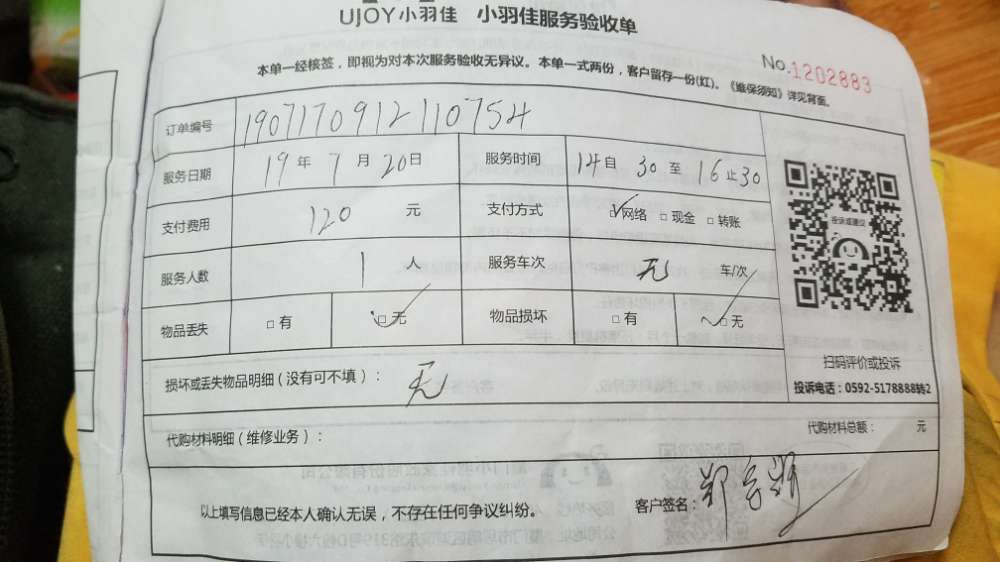 UJOY小羽佳 小羽佳服务验收单
No.1202883
本单一经核签，即视为对本次服务验收无异议。本单一式两份，客户留存一份(红)。《维保须知》详见背面。
订单编号 1907170912110754
服务日期 19 年 7 月 20 日 服务时间 14 自 30 至 16 止 30
支付费用 120 元 支付方式 ☑网络 □现金 □转账
服务人数 1 人 服务车次 无 车/次
物品丢失 □有 ☑无 物品损坏 □有 ☑无
投诉或建议
扫码评价或投诉
投诉电话：0592-5178888转2
损坏或丢失物品明细（没有可不填）： 无
代购材料明细（维修业务）： 代购材料总额： 元
以上填写信息已经本人确认无误，不存在任何争议纠纷。 客户签名：